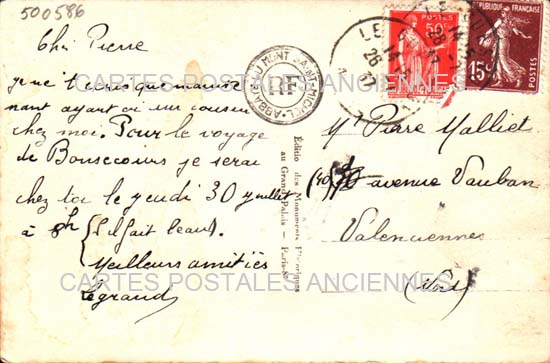 500586
Cher Pierre
je ne t'ecris que maintenant
nant ayant eu un cousin
chez moi. Pour le voyage
de Bonsecours je serai
chez toi le jeudi 30 juillet
à 8h s'il fait beau.
Meilleurs amitiés
Legrand
ABBAYE DU MONT SAINT-MICHEL
RF
Editio des Monuments Historiques
au Grand Palais — Paris-8e
LE
26
POSTES
50c
RÉPUBLIQUE FRANÇAISE
15c
POSTES
Mr Pierre Malliet
40 avenue Vauban
Valenciennes
(Nord)
CARTES POSTALES ANCIENNES
CARTES POSTALES ANCIENNES